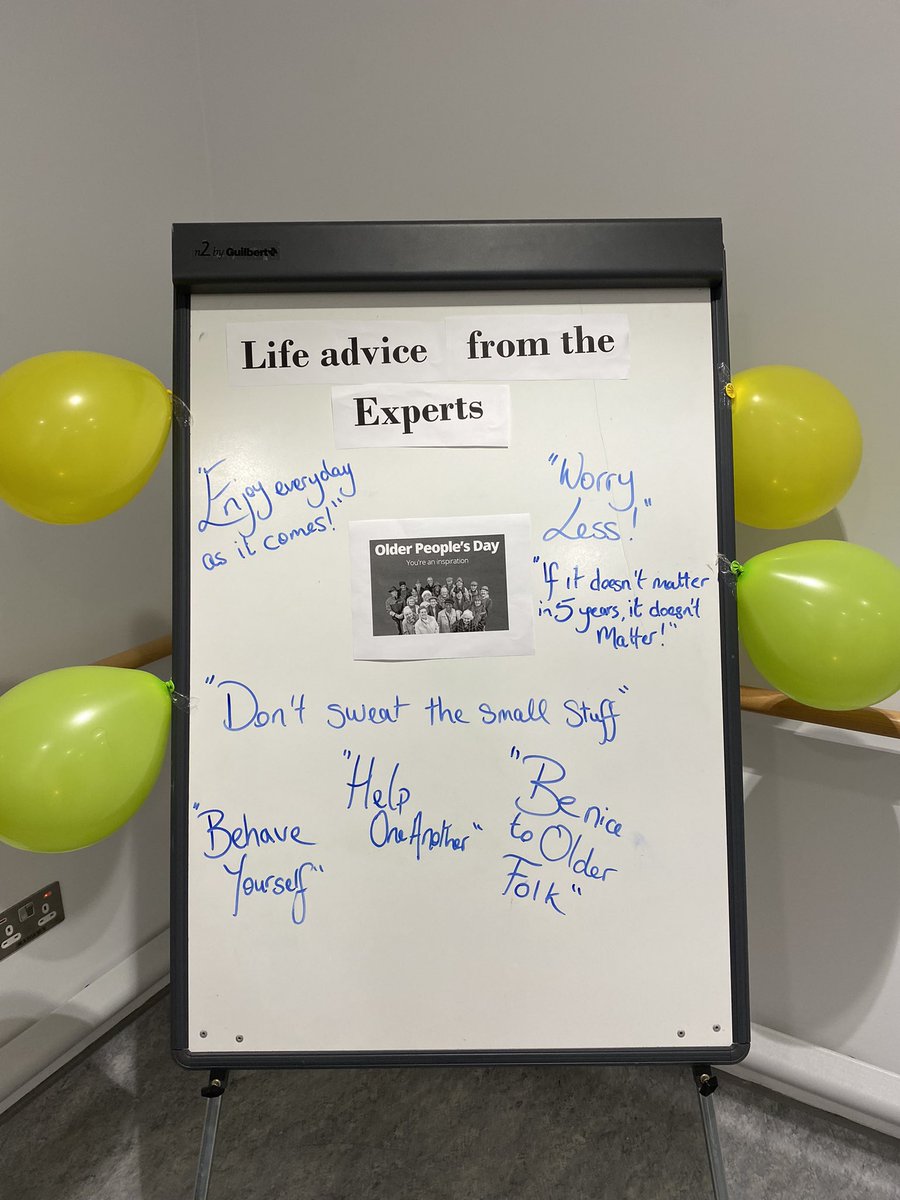 n2 by Guilbert
Life advice from the
Experts
"Enjoy everyday
as it comes!"
"Worry
Less!"
Older People's Day
You're an inspiration
"If it doesn't matter
in 5 years, it doesn't
Matter!"
"Don't sweat the small stuff"
"Help
One Another"
"Be nice
to Older
Folk"
"Behave
Yourself"